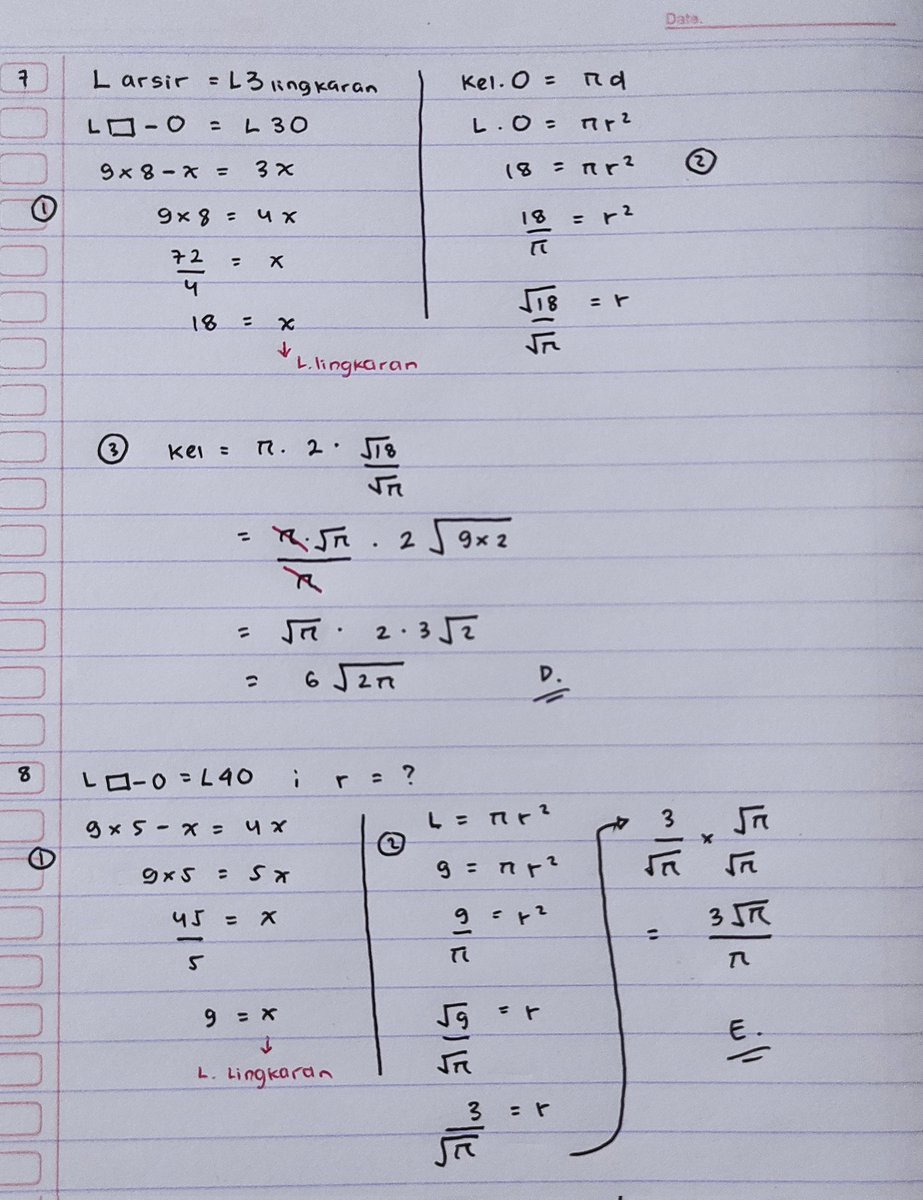 Date.
7
L arsir = L3 lingkaran
L □ - O = L 3O
9 × 8 - x = 3x
① 9 × 8 = 4x
72/4 = x
18 = x
↓
L. lingkaran
Kel. O = πd
L. O = πr²
18 = πr² ②
18/π = r²
√18/√π = r
③ Kel = π. 2 · √18/√π
= π·√π/π · 2 √9×2
= √π · 2 · 3√2
= 6 √2π D.
8
L □ - O = L4O ; r = ?
9 × 5 - x = 4x
① 9 × 5 = 5x
45/5 = x
9 = x
↓
L. Lingkaran
② L = πr²
9 = πr²
9/π = r²
√9/√π = r
3/√π = r
3/√π × √π/√π
= 3√π/π
E.